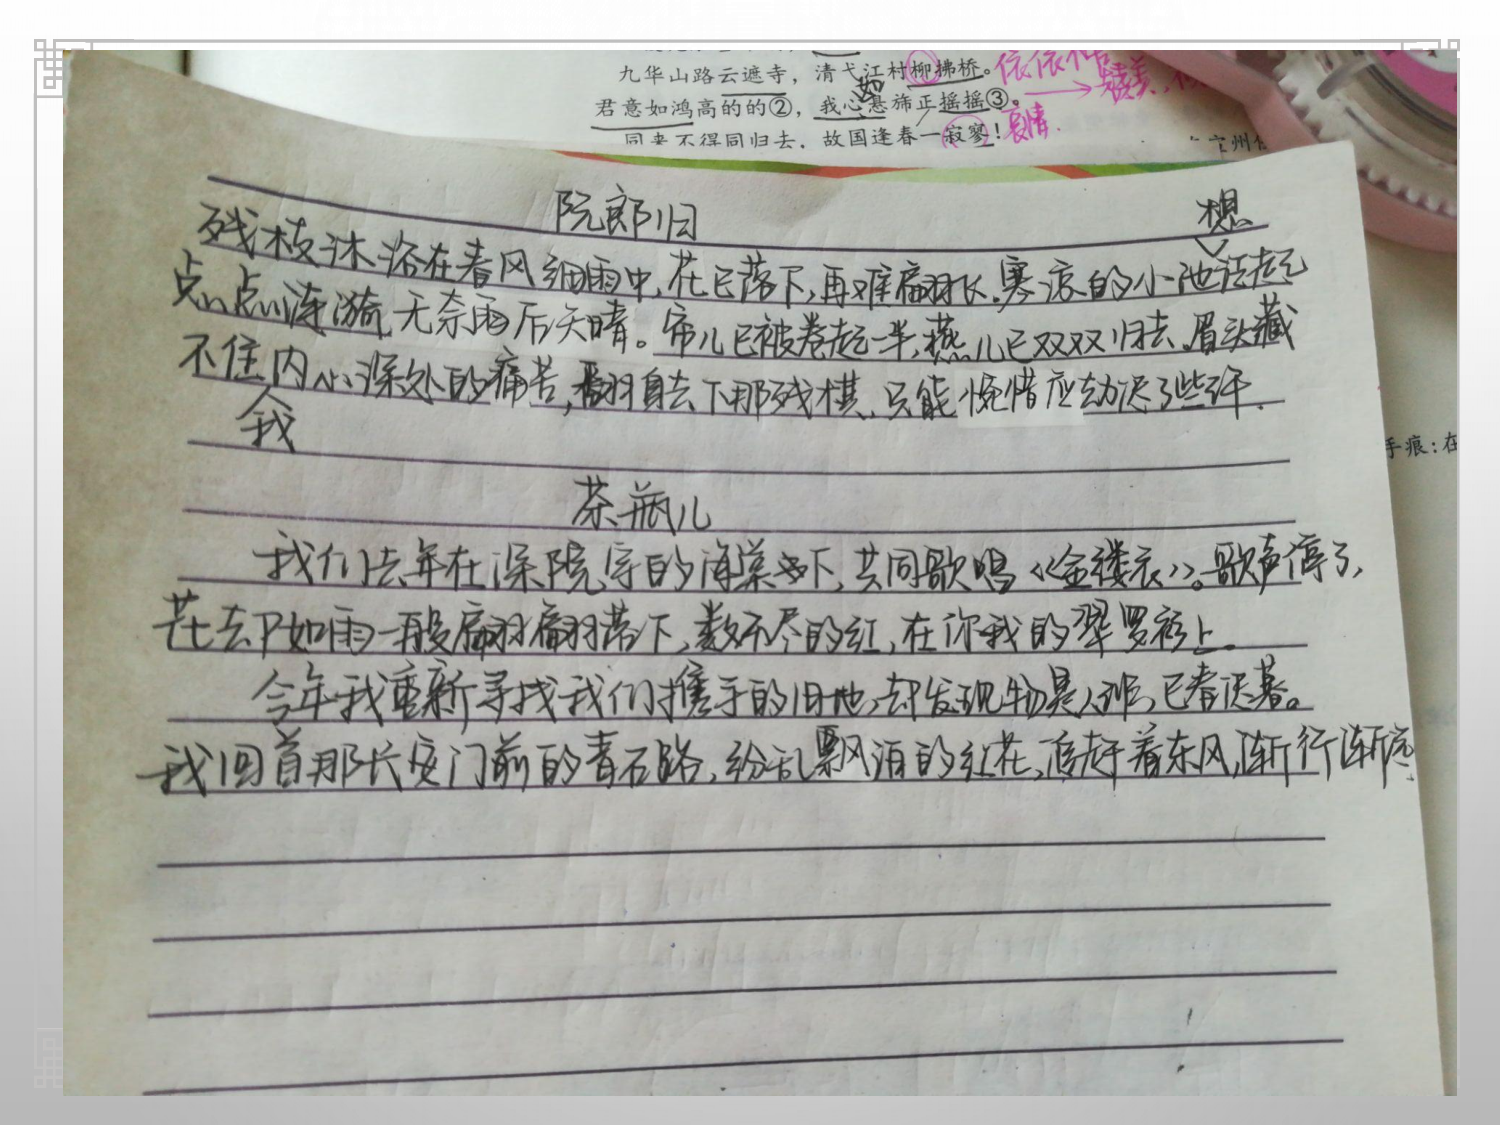 九华山路云遮寺，清弋江村柳拂桥。
君意如鸿高的的②，我心悬旆正摇摇③。
如
同来不得同归去，故国逢春一寂寥！
哀情
手痕：在
阮郎归
想
残枝沐浴在春风细雨中，花已落下，再难翩长。寒凉的小池泛起
点点涟漪，无奈雨后天晴。帘儿已被卷起一半，燕儿已双双归去。眉头藏
不住内心深处的痛苦，翻身去下那残棋，只能惋惜应劫迟了些许。
我
茶瓶儿
我们去年在深院宇的海棠下，共同歌唱《金缕衣》。歌声停了，
花却如雨一般翩翩落下，数不尽的红，在你我的翠罗衫上。
今年我重新寻找我们携手的旧地，却发现物是人非，已春迟暮。
我回首那长安门前的青石路，纷乱飘泊的红花，追赶着东风，渐行渐远。